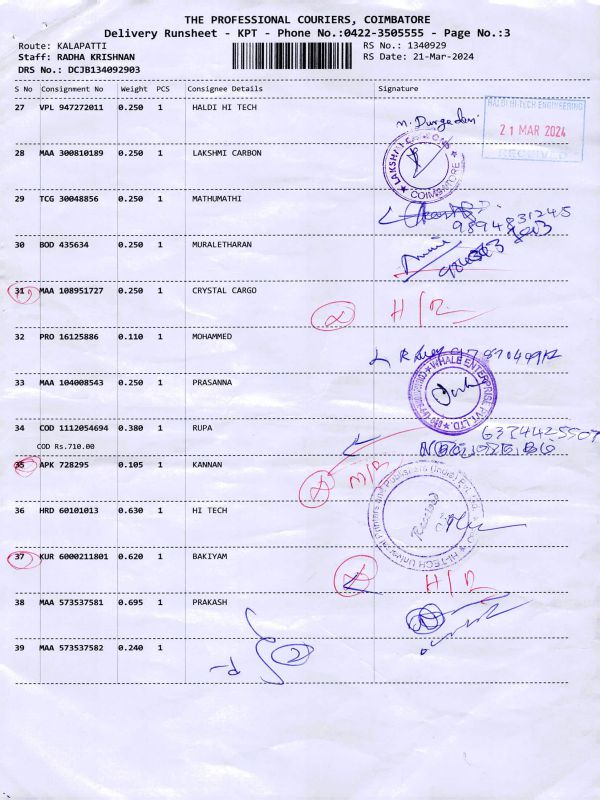 THE PROFESSIONAL COURIERS, COIMBATORE
Delivery Runsheet - KPT - Phone No.:0422-3505555 - Page No.:3
Route: KALAPATTI RS No.: 1340929
Staff: RADHA KRISHNAN RS Date: 21-Mar-2024
DRS No.: DCJB134092903
S No Consignment No Weight PCS Consignee Details Signature
27 VPL 947272011 0.250 1 HALDI HI TECH
HALDI HI-TECH ENGINEERING
21 MAR 2024
RECEIVED
28 MAA 300810189 0.250 1 LAKSHMI CARBON
COIMBATORE
29 TCG 30048856 0.250 1 MATHUMATHI
9894831245
30 BOD 435634 0.250 1 MURALETHARAN
31 MAA 108951727 0.250 1 CRYSTAL CARGO
32 PRO 16125886 0.110 1 MOHAMMED
33 MAA 104008543 0.250 1 PRASANNA
WHALE ENTERPRISE PVT. LTD.
34 COD 1112054694 0.380 1 RUPA
COD Rs.710.00
35 APK 728295 0.105 1 KANNAN
36 HRD 60101013 0.630 1 HI TECH
Received
37 KUR 6000211801 0.620 1 BAKIYAM
38 MAA 573537581 0.695 1 PRAKASH
39 MAA 573537582 0.240 1